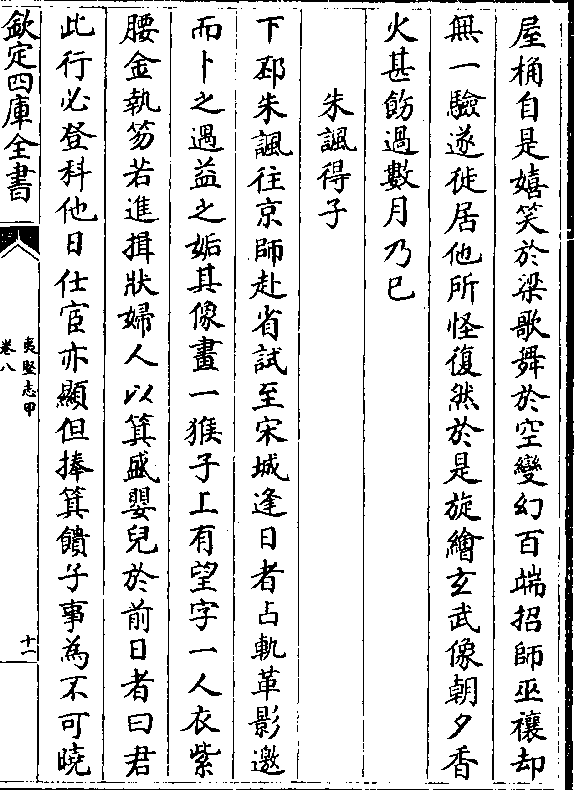 屋桷自是嬉笑於梁歌舞於空變幻百端招師巫禳却
無一驗遂徙居他所怪復然於是旋繪玄武像朝夕香
火甚飭過數月乃已
朱諷得子
下邳朱諷往京師赴省試至宋城逢日者占軌革影邀
而卜之遇益之姤其像畫一猴子上有望字一人衣紫
腰金執笏若進揖狀婦人以箕盛嬰兒於前日者曰君
此行必登科他日仕宦亦顯但捧箕饋子事為不可曉
欽定四庫全書
夷堅志甲
卷八
十一